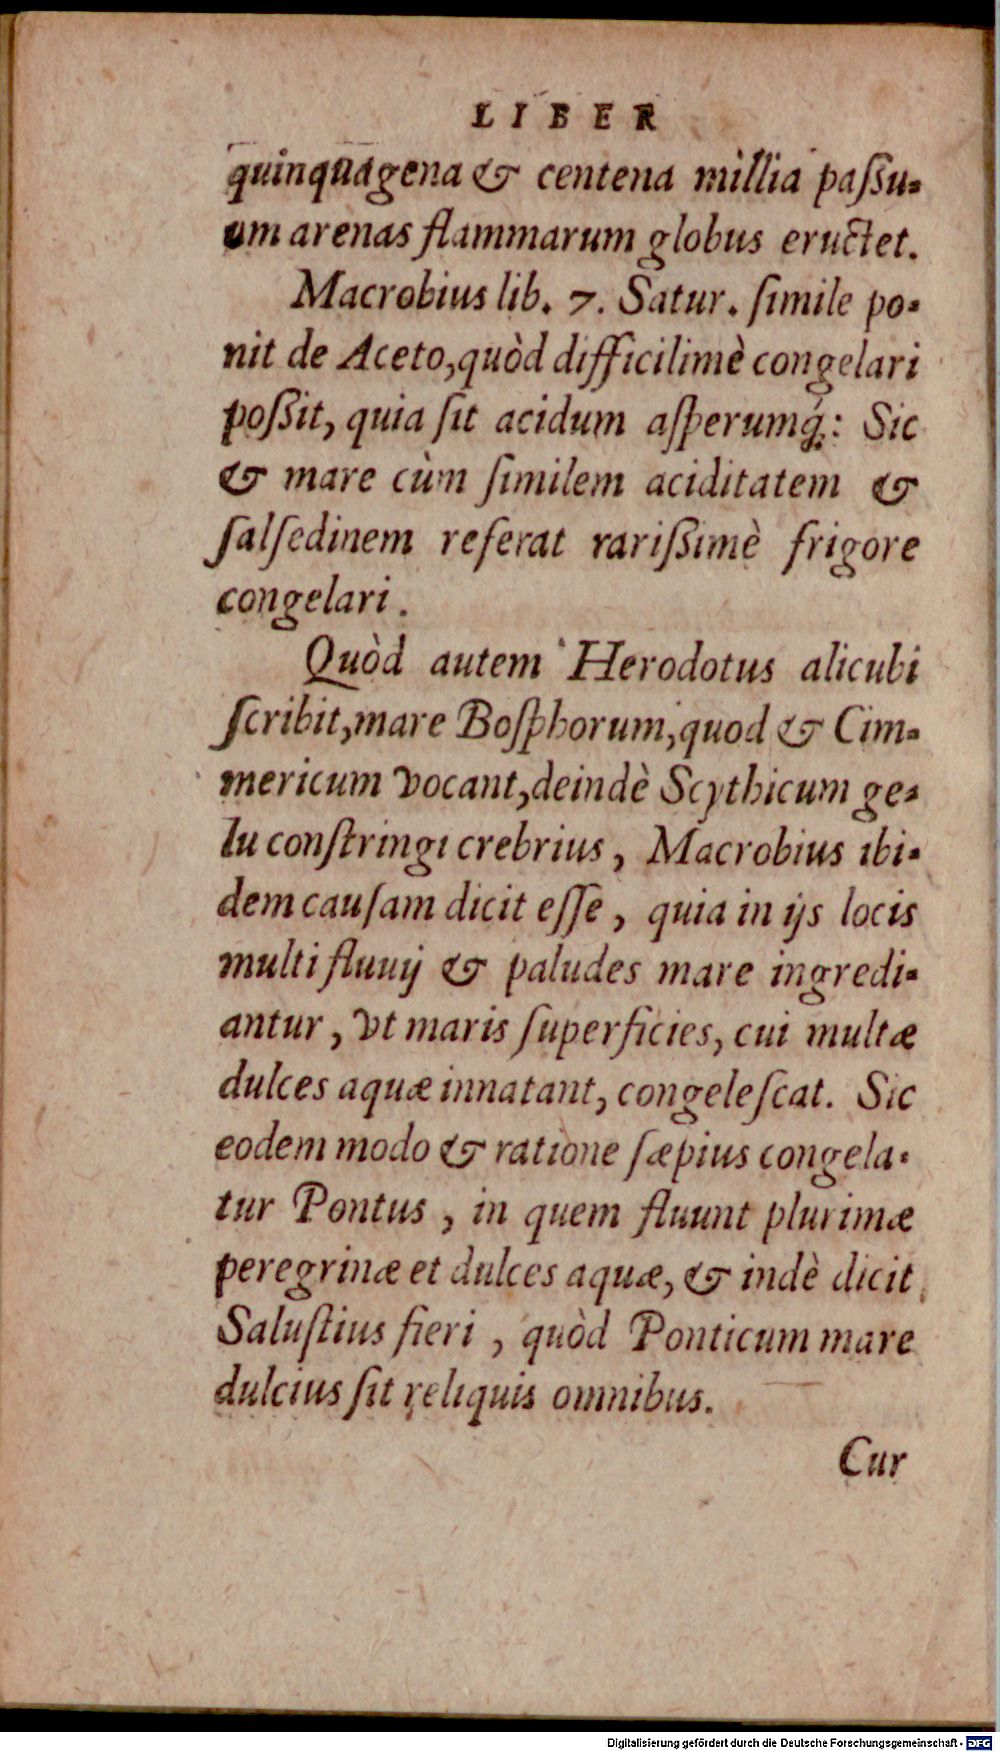 LIBER
quinquagena & centena millia paſſu-
um arenas flammarum globus eructet.
Macrobius lib. 7. Satur. ſimile po-
nit de Aceto, quòd difficilimè congelari
poſſit, quia ſit acidum aſperumq́;: Sic
& mare cùm ſimilem aciditatem &
ſalſedinem referat rariſſimè frigore
congelari.
Quòd autem Herodotus alicubi
ſcribit, mare Boſphorum, quod & Cim-
mericum vocant, deindè Scythicum ge-
lu conſtringi crebrius, Macrobius ibi-
dem cauſam dicit eſſe, quia in ijs locis
multi fluuij & paludes mare ingredi-
antur, vt maris ſuperficies, cui multæ
dulces aquæ innatant, congeleſcat. Sic
eodem modo & ratione ſæpius congela-
tur Pontus, in quem fluunt plurimæ
peregrinæ et dulces aquæ, & indè dicit
Saluſtius fieri, quòd Ponticum mare
dulcius ſit reliquis omnibus.
Cur
Digitalisierung gefördert durch die Deutsche Forschungsgemeinschaft - DFG